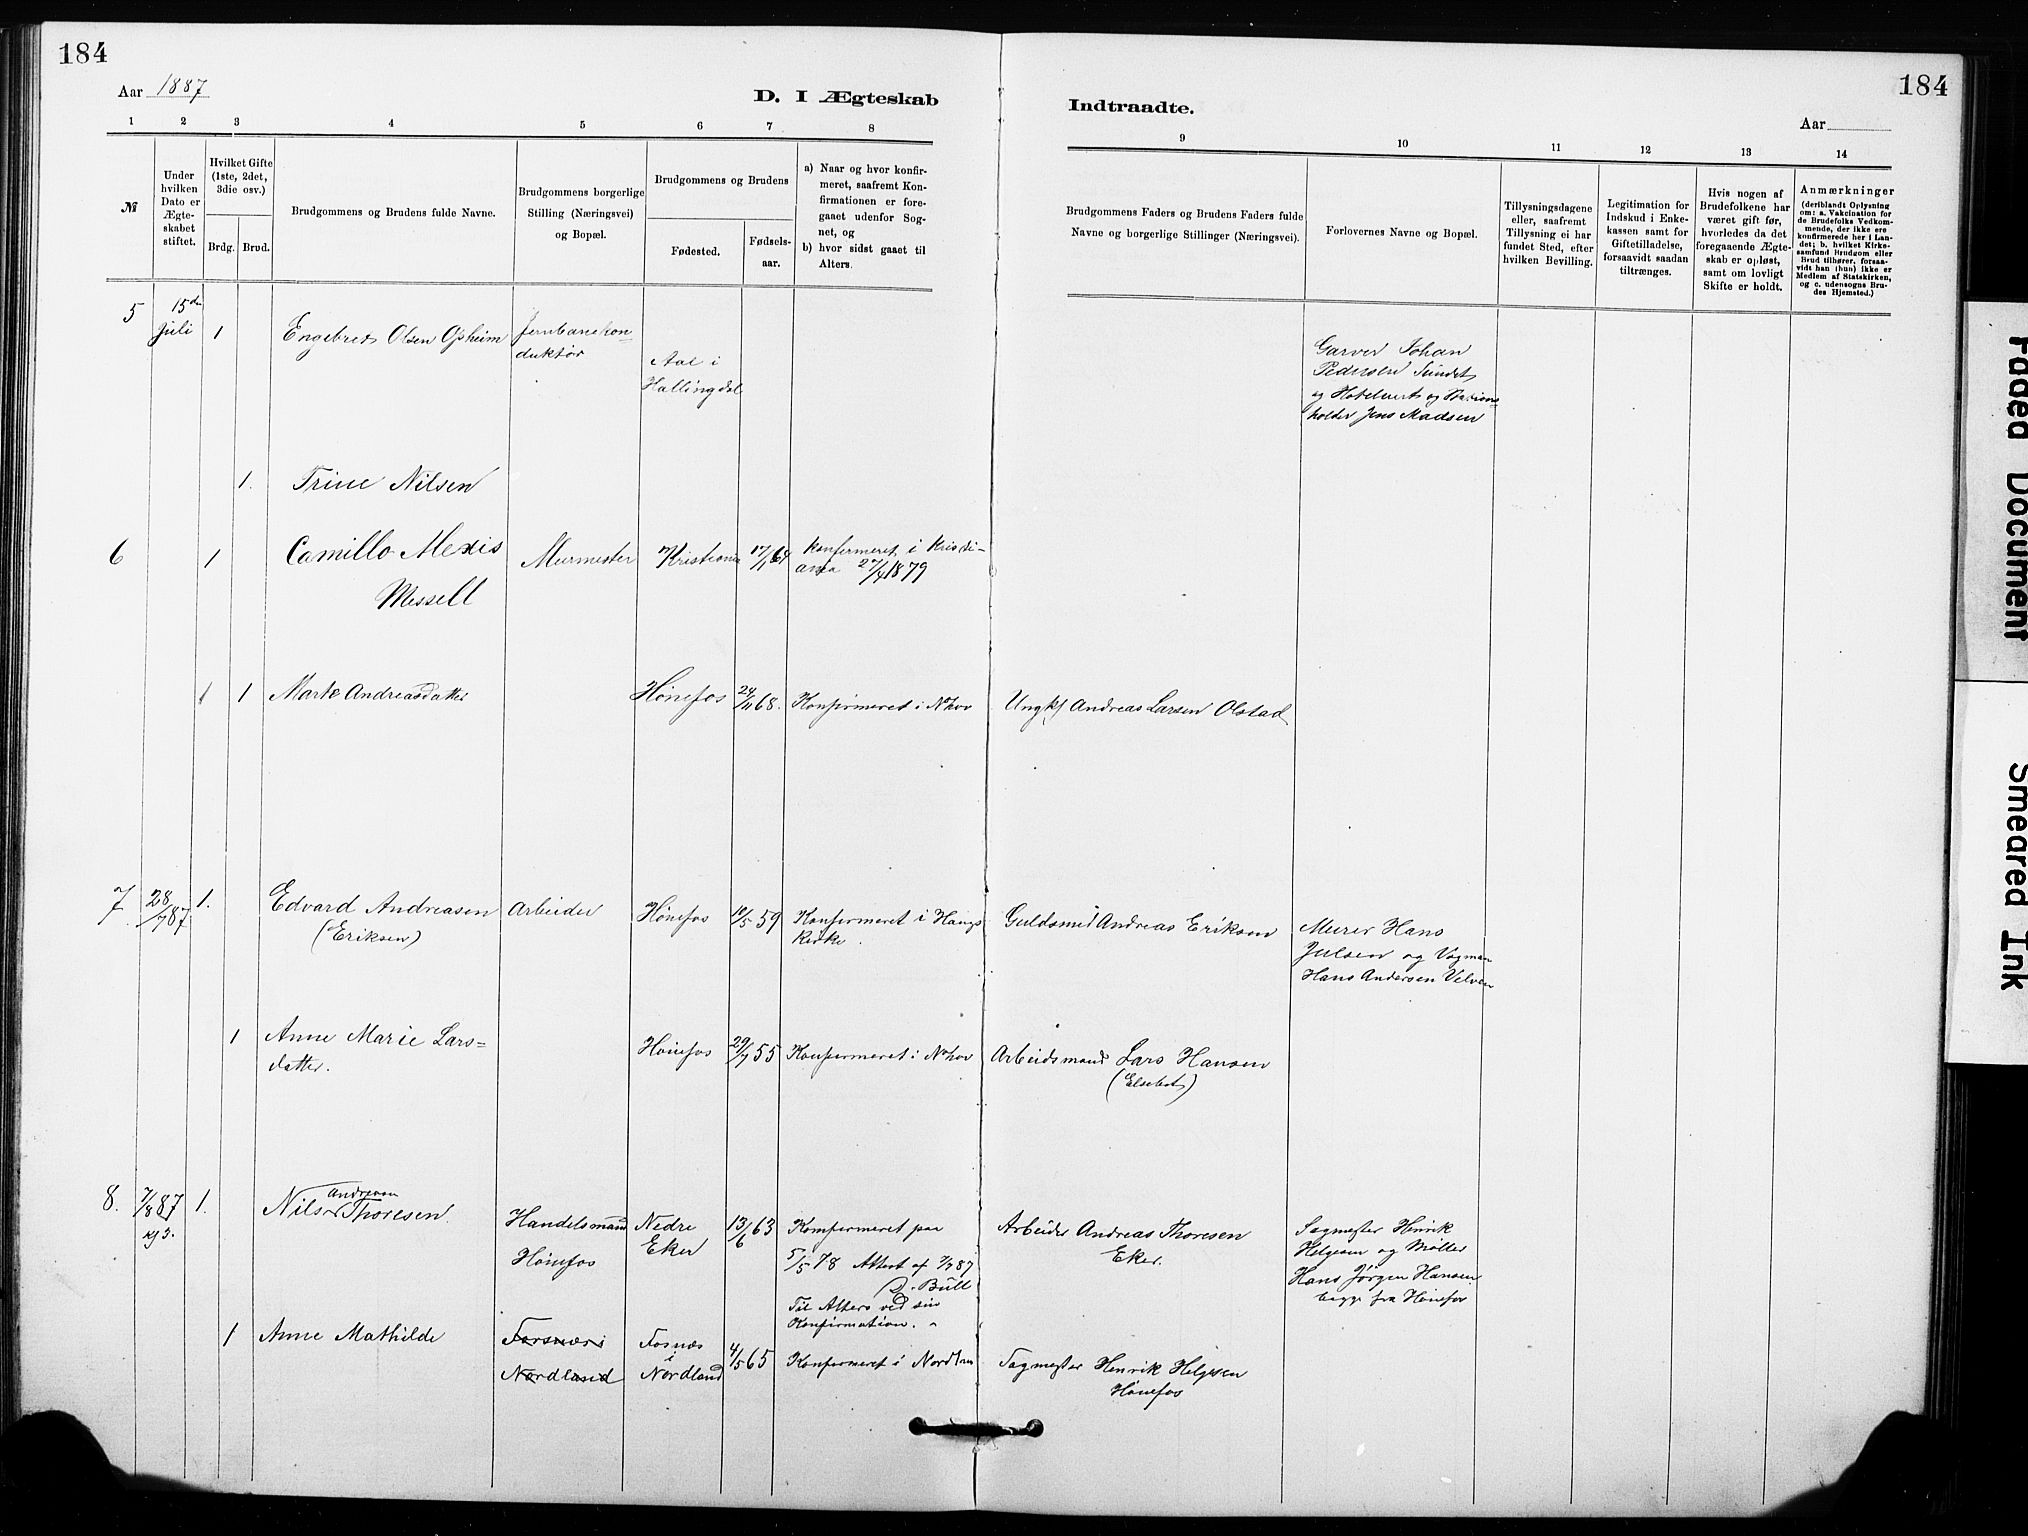 184
Aar 1887
D. I Ægteskab
1 2 3 4 5 6 7 8
№
Under
hvilken
Dato er
Ægte-
skabet
stiftet.
Hvilket Gifte
(1ste, 2det,
3die osv.)
Brdg. Brud.
Brudgommens og Brudens fulde Navne.
Brudgommens borgerlige
Stilling (Næringsvei)
og Bopæl.
Brudgommens og Brudens
Fødested.
Fødsels-
aar.
a) Naar og hvor konfir-
meret, saafremt Kon-
firmationen er fore-
gaaet udenfor Sog-
net, og
b) hvor sidst gaaet til
Alters.
5
15de
Juli
1
Engebret Olsen Opheim
Jernbanekon-
duktør
Aal i
Hallingdal
1.
Trine Nilsen
6
1
Camillo Alexis
Messell
Murmester
Kristiania
17/1 64
Konfermeret i Kristi-
ania 27/4 1879
1
Marte Andreasdatter
Hønefos
24/11 68.
Konfirmeret i Nhov
7
28/7 87
1.
Edvard Andreasen
(Eriksen)
Arbeider
Hønefos
10/5 59
Konfermeret i Haugs
Kirke.
1
Anne Marie Lars-
datter.
Hønefos
29/7 55
Konfermeret i Nhov
8.
7/8 87
kl 3.
1.
Andresen
Nils Thoresen.
Handelsmand
Hønefos
Nedre
Eker
13/6 63
Konfermeret paa
5/5 78 Attest af 7/7 87
Bull
Til Alters ved sin
Konfirmation.
1
Anne Mathilde
Fosnæs i
Nordland
Fosnæs
i
Nordland
4/5 65
Konfermeret i
184
Indtraadte.
Aar
9 10 11 12 13 14
Brudgommens Faders og Brudens Faders fulde
Navne og borgerlige Stillinger (Næringsvei).
Forlovernes Navne og Bopæl.
Tillysningsdagene
eller, saafremt
Tillysning ei har
fundet Sted, efter
hvilken Bevilling.
Legitimation for
Indskud i Enke-
kassen samt for
Giftetilladelse,
forsaavidt saadan
tiltrænges.
Hvis nogen af
Brudefolkene har
været gift før,
hvorledes da det
foregaaende Ægte-
skab er opløst,
samt om lovligt
Skifte er holdt.
Anmærkninger
(deriblandt Oplysning
om: a. Vakcination for
de Brudefolks Vedkom-
mende, der ikke ere
konfirmerede her i Lan-
det; b. hvilket Kirke-
samfund Brudgom eller
Brud tilhører, forsaa-
vidt han (hun) ikke er
Medlem af Statskirken,
og c. udensogns Bru-
des Hjemsted.)
Garver Johan
Pedersen Sundet
og Hotelvert og Stations-
holder Jens Madsen
Ungkl Andreas Larsen Olstad
Guldsmed Andreas Eriksen
Murer Hans
Julsen og Vogman
Hans Andersen Velven
Arbeidsmand Lars Hansen
(Elsebet)
Arbeider Andreas Thoresen
Eker.
Sagmester Henrik
Helgesen og Møller
Hans Jørgen Hansen
begge fra Hønefos
Sagmester Henrik Helgesen
Hønefos
Faded Document
Smeared Ink